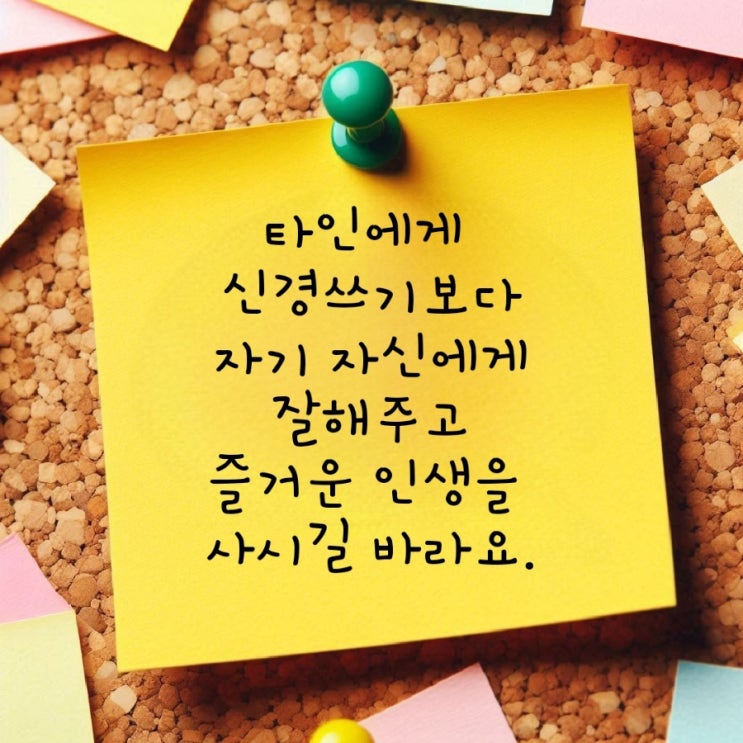 타인에게
신경쓰기보다
자기 자신에게
잘해주고
즐거운 인생을
사시길 바라요.